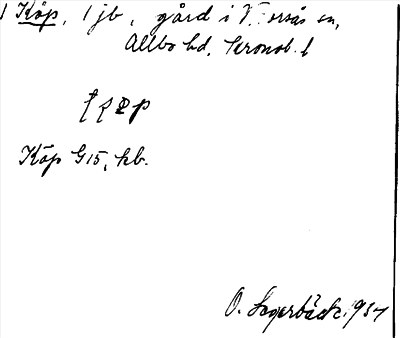 1 Köp, 1 jb, gård i V. Torsås sn,
Allbo hd, Kronob. l
Köp G15, hb.
O. Lagerbäck 1937